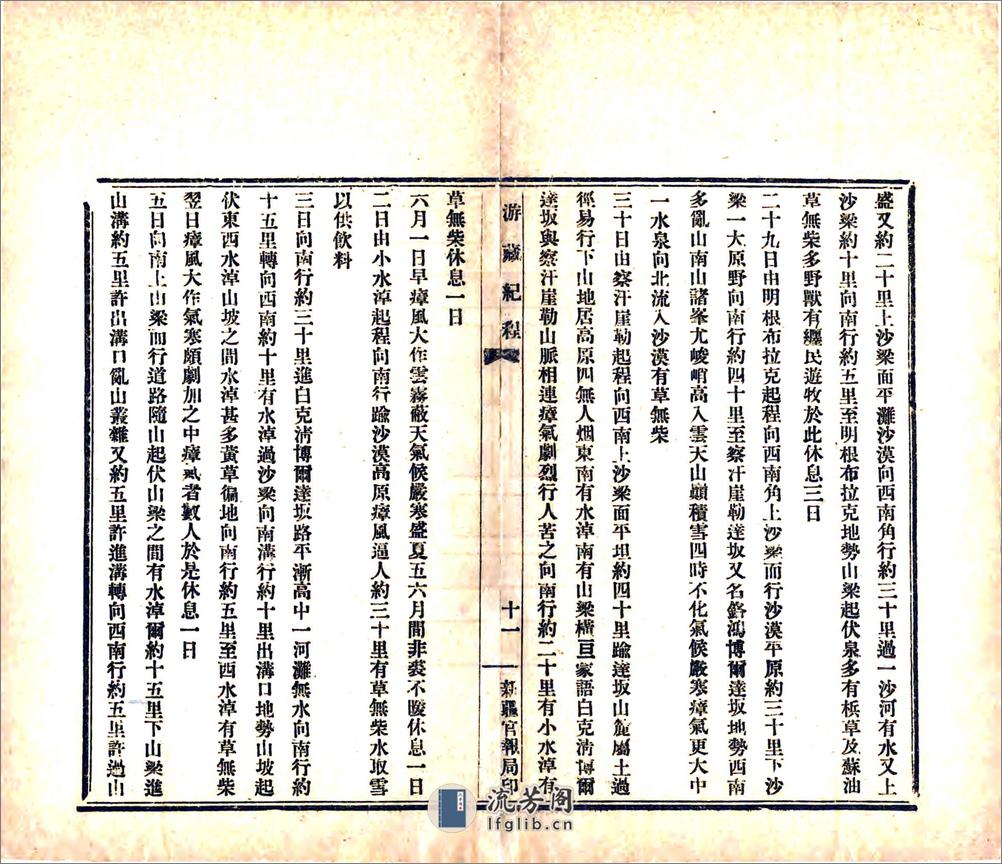 盛又約二十里上沙梁面平灘沙漠向西南角行約三十里過一沙河有水又上
沙梁約十里向南行約五里至明根布拉克地勢山梁起伏泉多有板草及蘇油
草無柴多野獸有纏民遊牧於此休息三日
二十九日由明根布拉克起程向西南角上沙梁而行沙漠平原約三十里下沙
梁一大原野向南行約四十里至察汗崖勒達坂又名鎔鴻博爾達坂地勢西南
多亂山南山諸峯尤峻峭高入雲天山巔積雪四時不化氣候嚴寒瘴氣更大中
一水泉向北流入沙漠有草無柴
三十日由察汗崖勒起程向西南上沙梁面平坦約四十里踰達坂山麓屬土過
徑易行下山地居高原四無人烟東南有水淖南有山梁橫亘蒙語白克清博爾
達坂與察汗崖勒山脈相連瘴氣劇烈行人苦之向南行約二十里有小水淖有
草無柴休息一日
游藏紀程
十一
新疆官報局印
六月一日早瘴風大作雲霧蔽天氣候嚴寒盛夏五六月間非裘不暖休息一日
二日由小水淖起程向南行踰沙漠高原瘴風逼人約三十里有草無柴水取雪
以供飲料
三日向南行約三十里進白克清博爾達坂路平漸高中一河灘無水向南行約
十五里轉向西南約十里有水淖過沙梁向南溝行約十里出溝口地勢山坡起
伏東西水淖山坡之間水淖甚多黃草徧地向南行約五里至西水淖有草無柴
翌日瘴風大作氣寒頗劇加之中瘴氣者數人於是休息一日
五日向南上山梁而行道路隨山起伏山梁之間有水淖爾約十五里下山梁進
山溝約五里許出溝口亂山叢雜又約五里許進溝轉向西南行約五里許過山
流芳閣
lfglib.cn